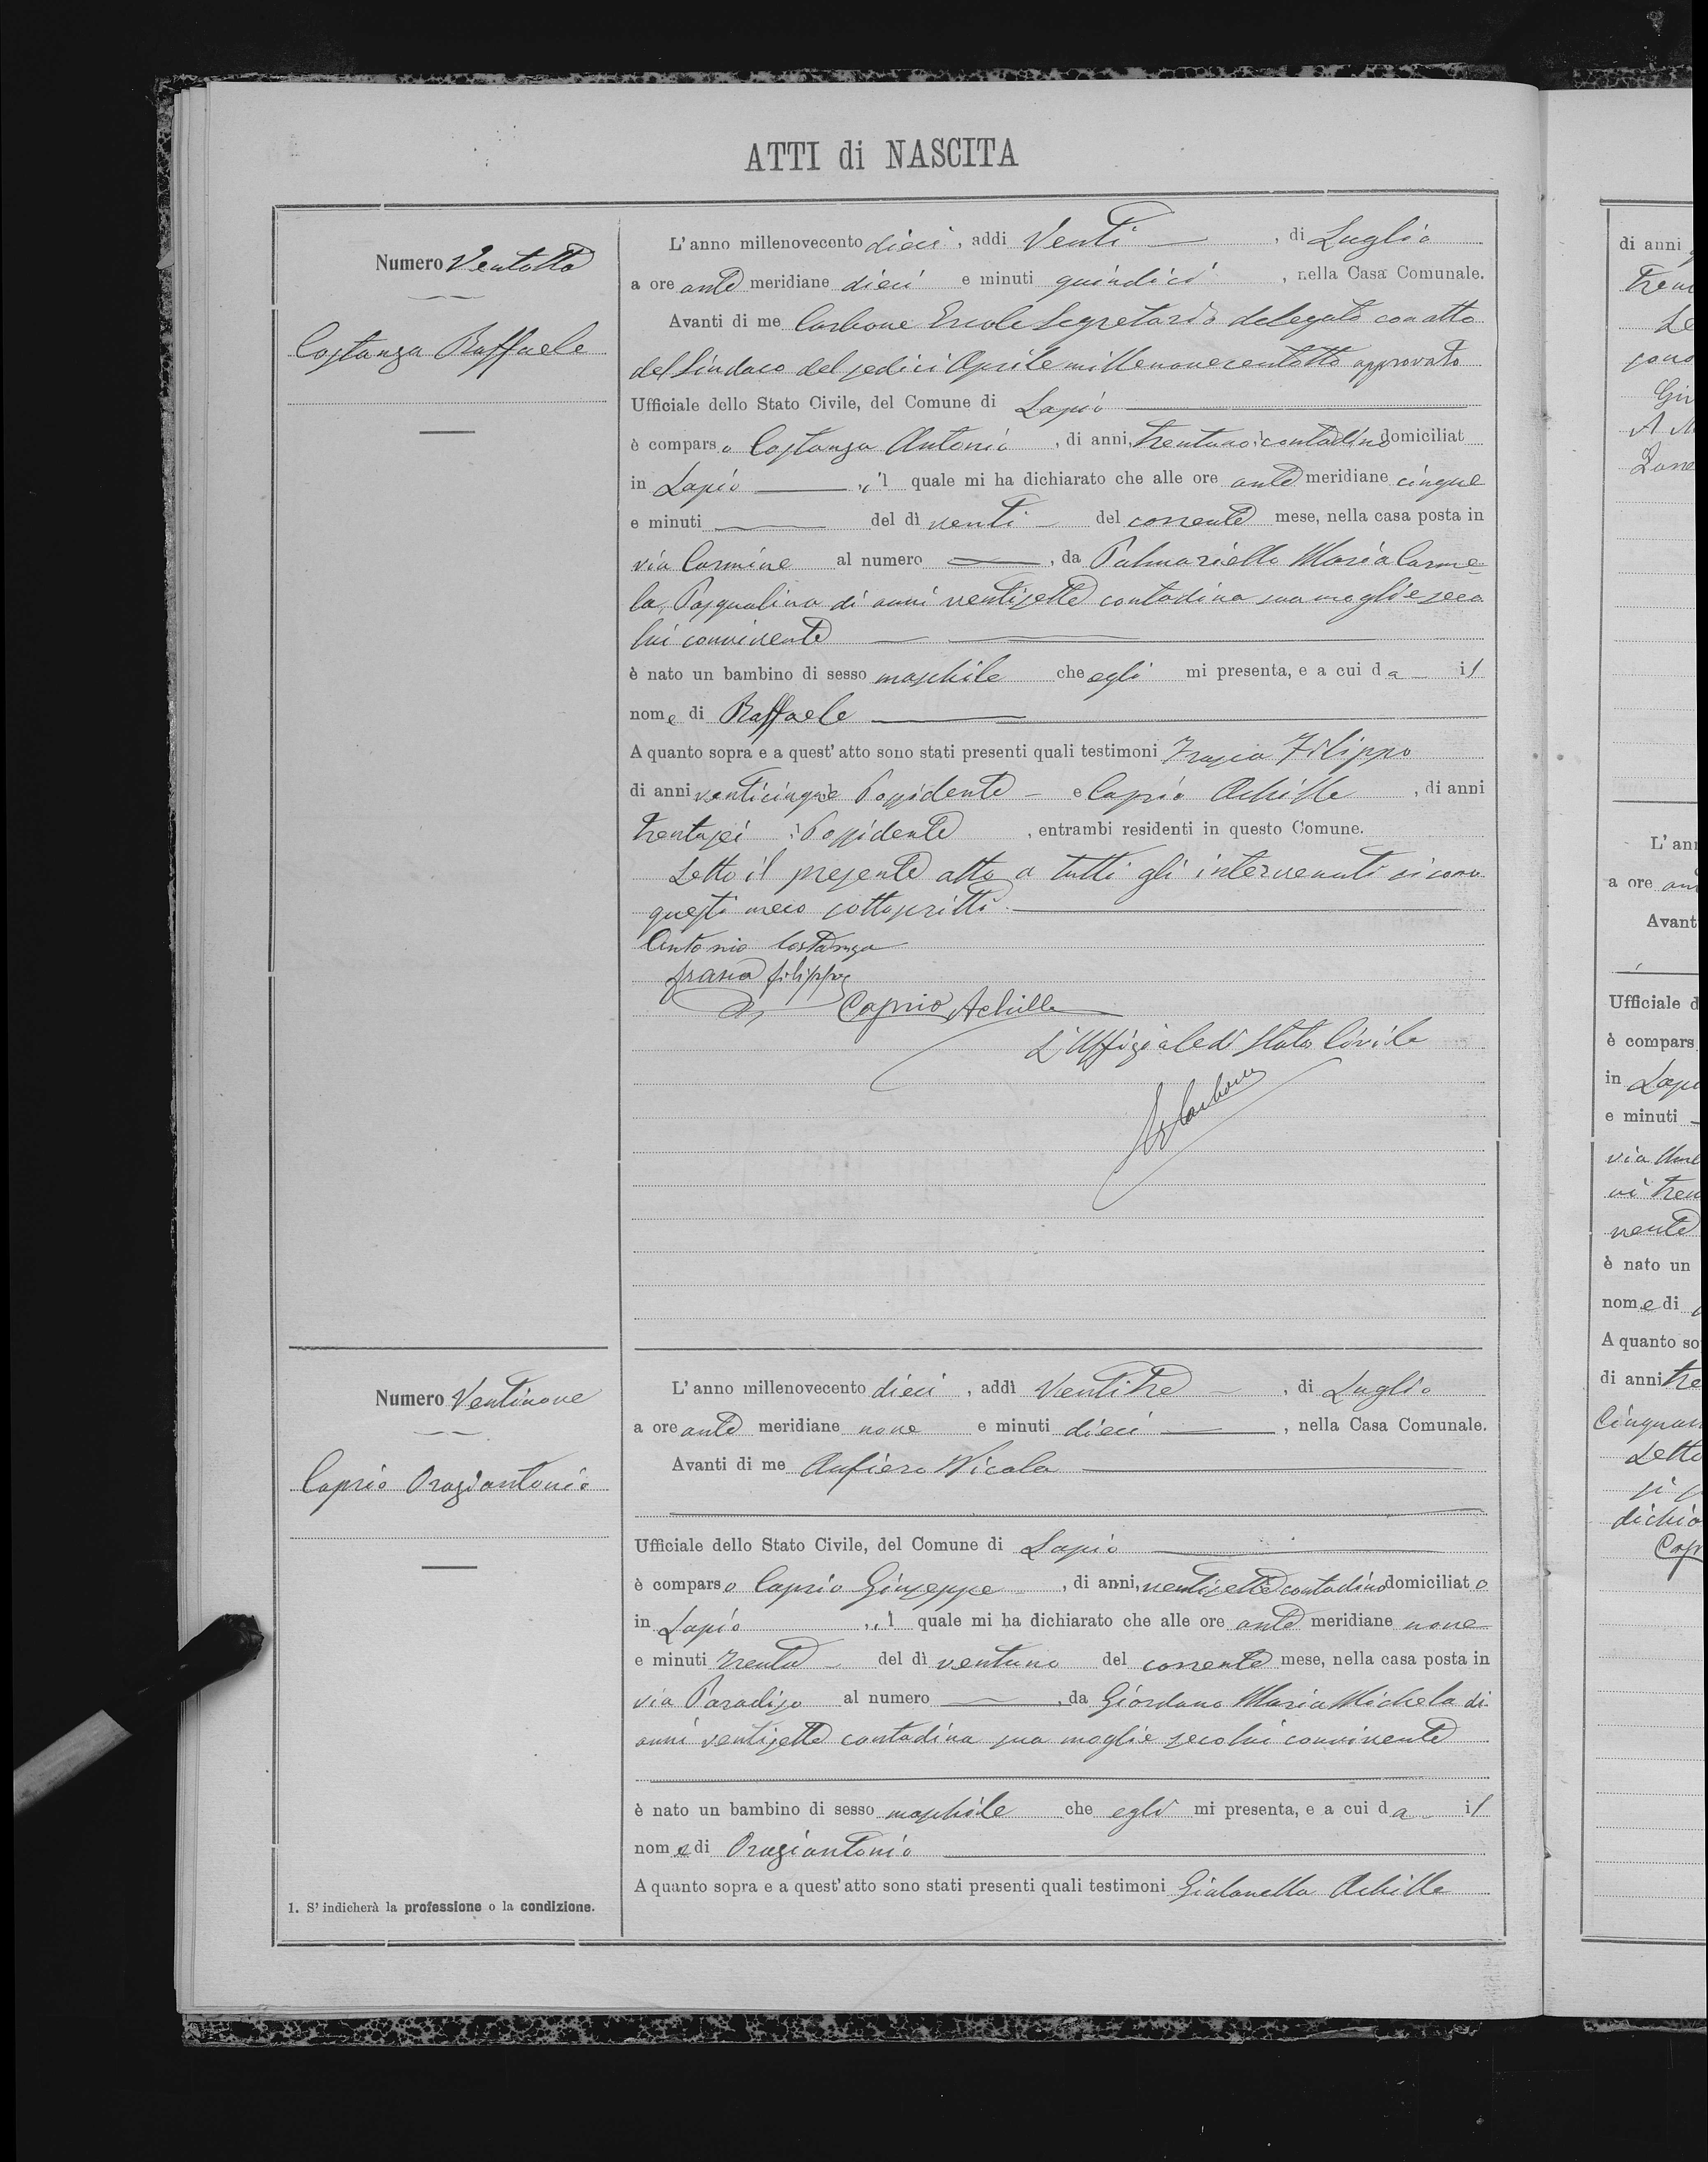 ATTI di NASCITA
Numero Ventotto
Costanza Raffaele
L'anno millenovecento dieci, addi Venti, di Luglio
a ore ante meridiane dieci e minuti quindici, nella Casa Comunale.
Avanti di me Carbone Ercole Segretario delegato con atto
del Sindaco del sedici Aprile millenovecentotto approvato
Ufficiale dello Stato Civile, del Comune di Lapio
è comparso Costanza Antonio, di anni, trentuno contadino domiciliat
in Lapio, il quale mi ha dichiarato che alle ore ante meridiane cinque
e minuti del dì venti del corrente mese, nella casa posta in
via Carmine al numero, da Palmariello Maria Carme-
la, Pasqualina di anni ventisette contadina sua moglie seco
lui convivente
è nato un bambino di sesso maschile che egli mi presenta, e a cui da il
nome di Raffaele
A quanto sopra e a quest'atto sono stati presenti quali testimoni Filippo
di anni venticinque Possidente e Caprio Achille, di anni
trentasei Possidente, entrambi residenti in questo Comune.
Letto il presente atto a tutti gli intervenuti si sono
questi meco sottoscritti
Antonio Costanza
filippo
Caprio Achille
L'Uffiziale di Stato Civile
Carbone
Numero Ventinove
Caprio Oraziantonio
L'anno millenovecento dieci, addì Ventitre, di Luglio
a ore ante meridiane nove e minuti dieci, nella Casa Comunale.
Avanti di me Aufiero Nicola
Ufficiale dello Stato Civile, del Comune di Lapio
è comparso Caprio Giuseppe, di anni, ventisette contadino domiciliato
in Lapio, il quale mi ha dichiarato che alle ore ante meridiane nove
e minuti trenta del dì ventuno del corrente mese, nella casa posta in
via Paradiso al numero, da Giordano Maria Michela di
anni ventisette contadina sua moglie seco lui convivente
è nato un bambino di sesso maschile che egli mi presenta, e a cui da il
nome di Oraziantonio
A quanto sopra e a quest'atto sono stati presenti quali testimoni Gialanella Achille
1. S'indicherà la professione o la condizione.
di anni
Le
L'an
a ore an
Avant
Ufficiale d
è compars
in Lapi
e minuti
via
vente
è nato un
nome di
A quanto so
di anni tre
Cinquan
Letto
dichia
Cap